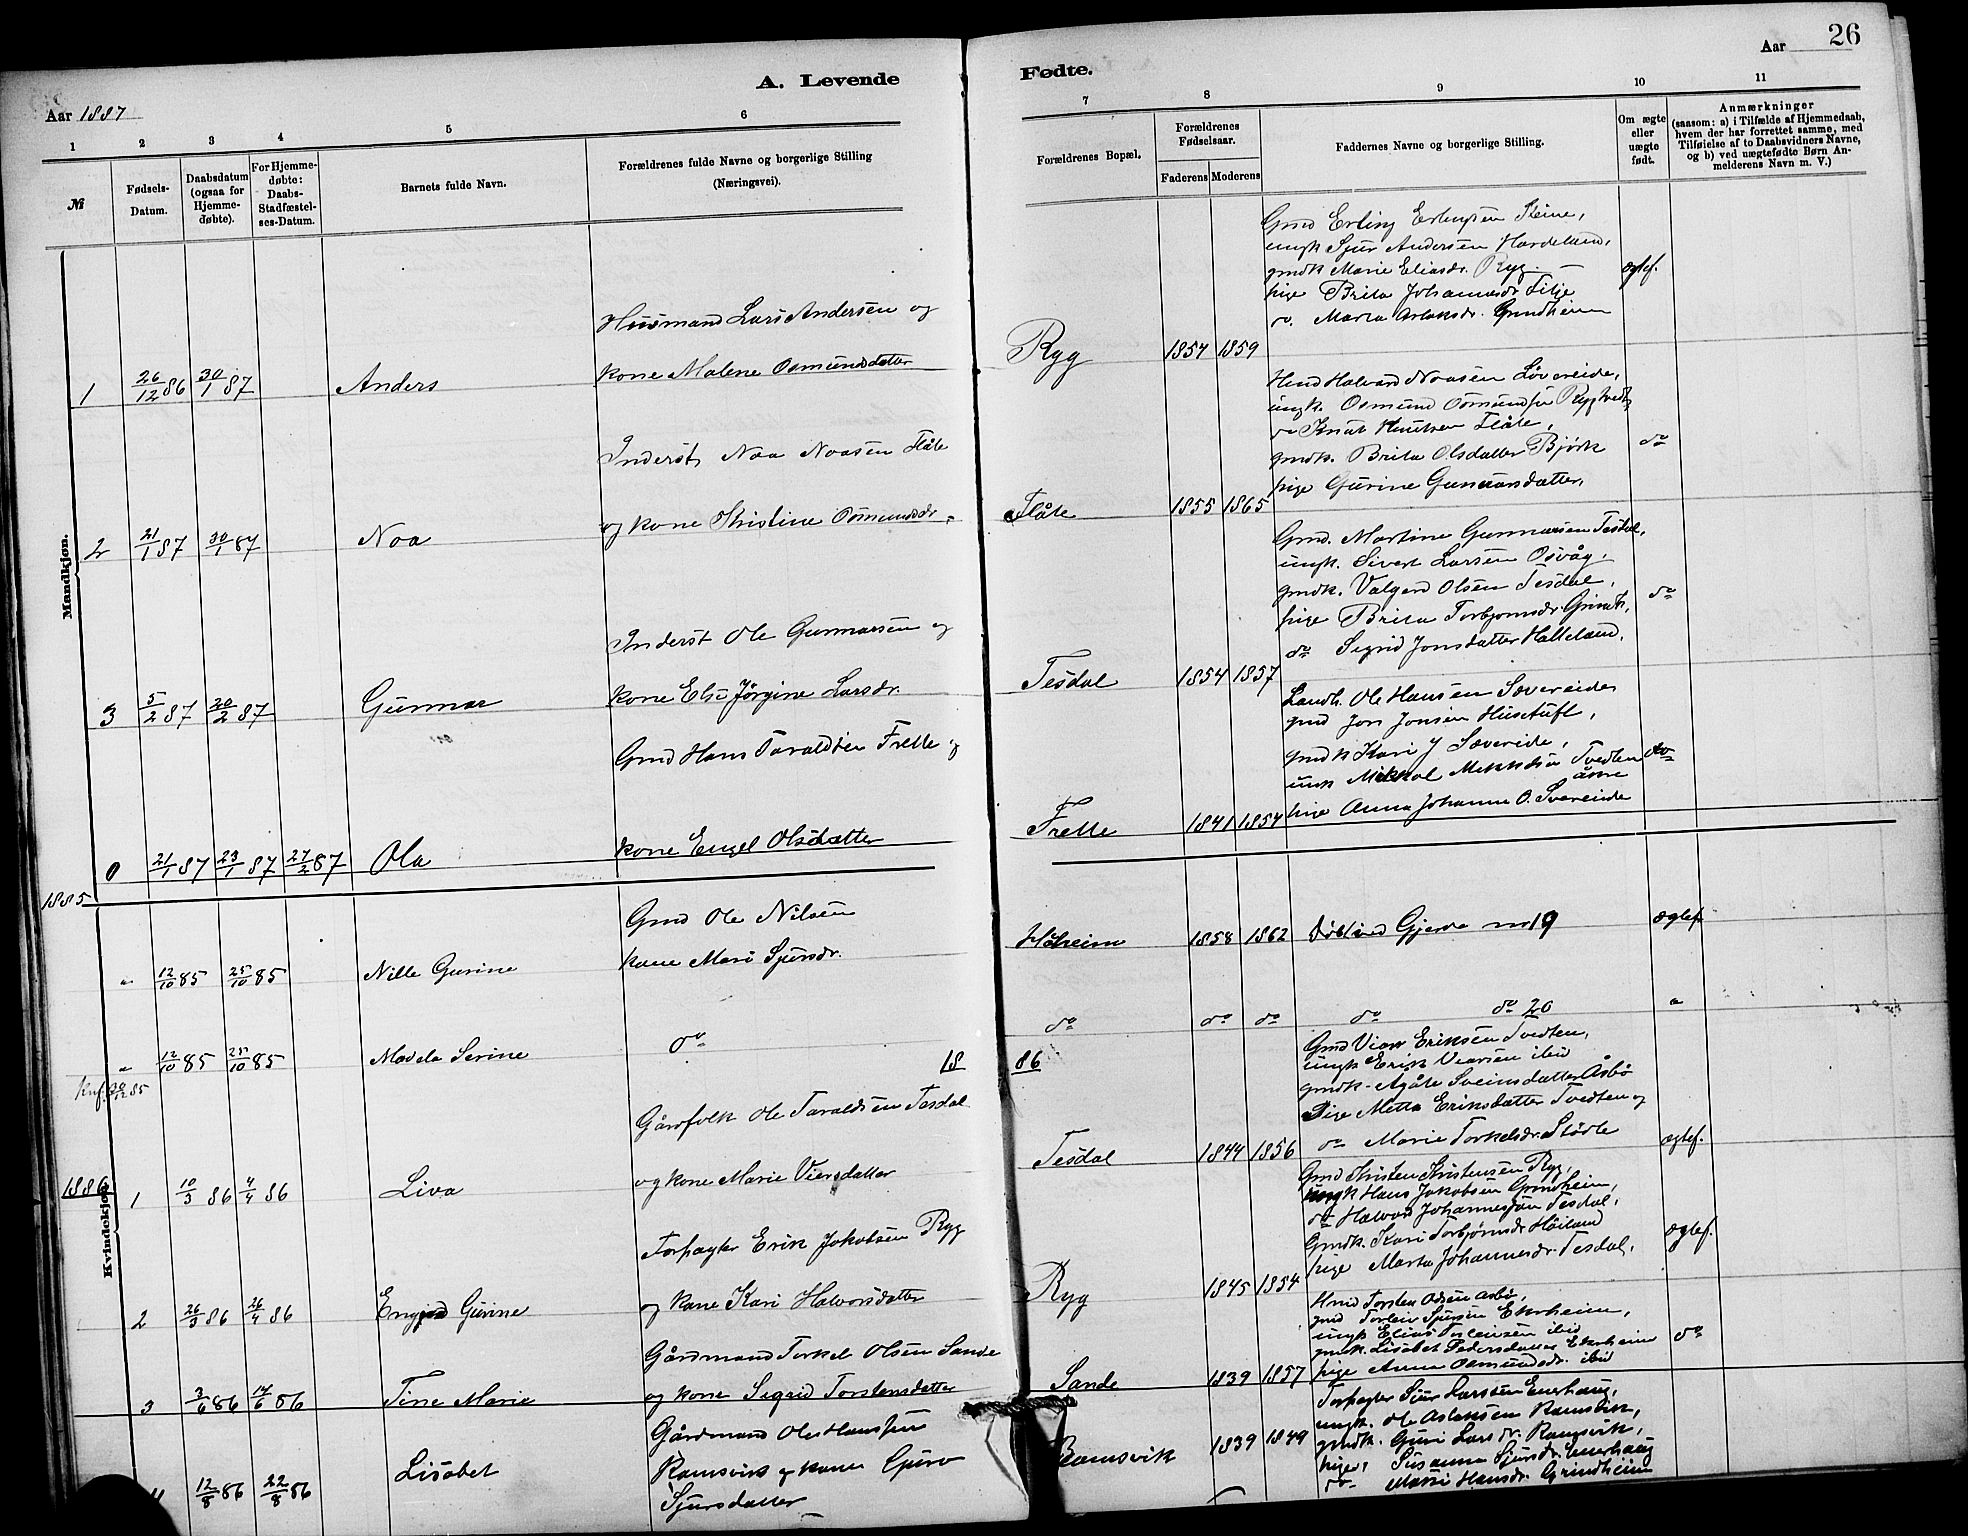 A. Levende
Fødte.
Aar
26
Aar 1887
1
2
3
4
5
6
7
8
9
10
11
№
Fødsels-
Datum.
Daabsdatum
(ogsaa for
Hjemme-
døbte).
For Hjemme-
døbte:
Daabs-
Stadfæstel-
ses-Datum.
Barnets fulde Navn.
Forældrenes fulde Navne og borgerlige Stilling
(Næringsvei).
Forældrenes Bopæl.
Forældrenes
Fødselsaar.
Faderens
Moderens
Faddernes Navne og borgerlige Stilling.
Om ægte
eller
uægte
født.
Anmærkninger
(saasom: a) i Tilfælde af Hjemmedaab,
hvem der har forrettet samme, med
Tilføielse af to Daabsvidners Navne,
og b) ved uægtefødte Børn An-
melderens Navn m. V.)
Mandkjøn.
1 26/12 86 30/1 87 Anders
Husmand Lars Andersen og
kone Malene Osmundsdatter
Ryg 1854 1859
Gmd Erling Erlingsen Steine,
ungk Sjur Andersen Hardeland,
gmdk Marie Eliasdr. Ryg
pige Brita Johannesdr Lilje
do. Marta Aslaksdr. Grindheim
ægtef.
2 21/1 87 30/1 87 Noa
Inderst Noa Noasen Flåte
og kone Kristine Osmundsdr.
Flåte 1855 1865
Hmd Halvard Noasen Løvereide,
ungk. Osmund Osmundsen Rygtvedt,
do Knut Knutsen Flåte,
gmdk. Brita Olsdatter Bjørk
pige Gurine Gunnarsdatter,
do
3 5/2 87 20/2 87 Gunnar
Inderst Ole Gunnarsen og
kone Else Jørgine Larsdr.
Tesdal 1854 1857
Gmd. Martine Gunnarsen Tesdal,
ungk. Sivert Larsen Osvåg,
gmdk. Valgerd Olsen Tesdal,
pige Brita Torbjørnsdr
do Sigrid Jonsdatter Halleland,
do
0 21/1 87 23/1 87 27/2 87 Ola
Gmd Hans Taraldsen Frette og
kone Engel Olsdatter
Frette 1841 1854
Landh. Ole Hansen Sævereide
gmd Jon Jonsen Husetuft,
gmdk Kari J Sævereide,
ungk Mikkal Mikkelsen Tvedten
åkre
pige Anna Johanne O. Svereide
do
1885
12/10 85 25/10 85 Nille Gurine
Gmd Ole Nilsen
kone Mari Sjursdr.
Høheim 1858 1862
Gjerde no 19
ægtef.
12/10 85 25/10 85 Madela Serine
do
do do do do do 20
18 86
1886
Kvindekjøn.
1 10/3 86 4/4 86 Liva
Gårdfolk Ole Taraldsen Tesdal
og kone Marie Viersdatter
Tesdal 1844 1856
Gmd Viar Eriksen Tvedten,
ungk Erik Viarsen ibid
gmdk. Agåte Sveinsdatter Åsbø
Pige Metta Eriksdatter Tvedten og
do Marie Torkelsdr. Stødle
ægtef.
2 26/3 86 26/4 86 Gurine
Forpagter Erik Jakobsen Ryg
og kone Kari Halvorsdatter
Ryg 1845 1854
Gmd Kristen Kristensen Ryg,
ungk Hans Jakobsen Grindheim,
do Halvard Johannessen Tesdal,
Gmdk. Kari Torbjørnsdr Høiland
pige Marta Johannesdr. Tesdal,
ægtef.
3 3/6 86 14/6 86 Tine Marie
Gårdmand Torkel Olsen Sande
og kone Sigrid Torstensdatter
Sande 1839 1857
Hmd Torsten Odsen Åsbø,
gmd Torleiv Sjursen Ekrheim,
ungk Elias Torleivsen ibid
gmdk. Lisabet Pedersdatter Ekrheim
pige Anna Osmundsdr. ibid
do
4 12/8 86 22/8 86 Lisabet
Gårdmand Ole Hansen
Ramsvik og kone Guro
Sjursdatter
Ramsvik 1839 1849
Forpagter Sjur Larssen Enerhaug,
ungk. Ole Aslaksen Ramsvik,
gmdk. Guri Larsdr. Ramsvik,
piger, Susanna Sjursdr. Enerhaug
do Marie Hansdr. Grindheim